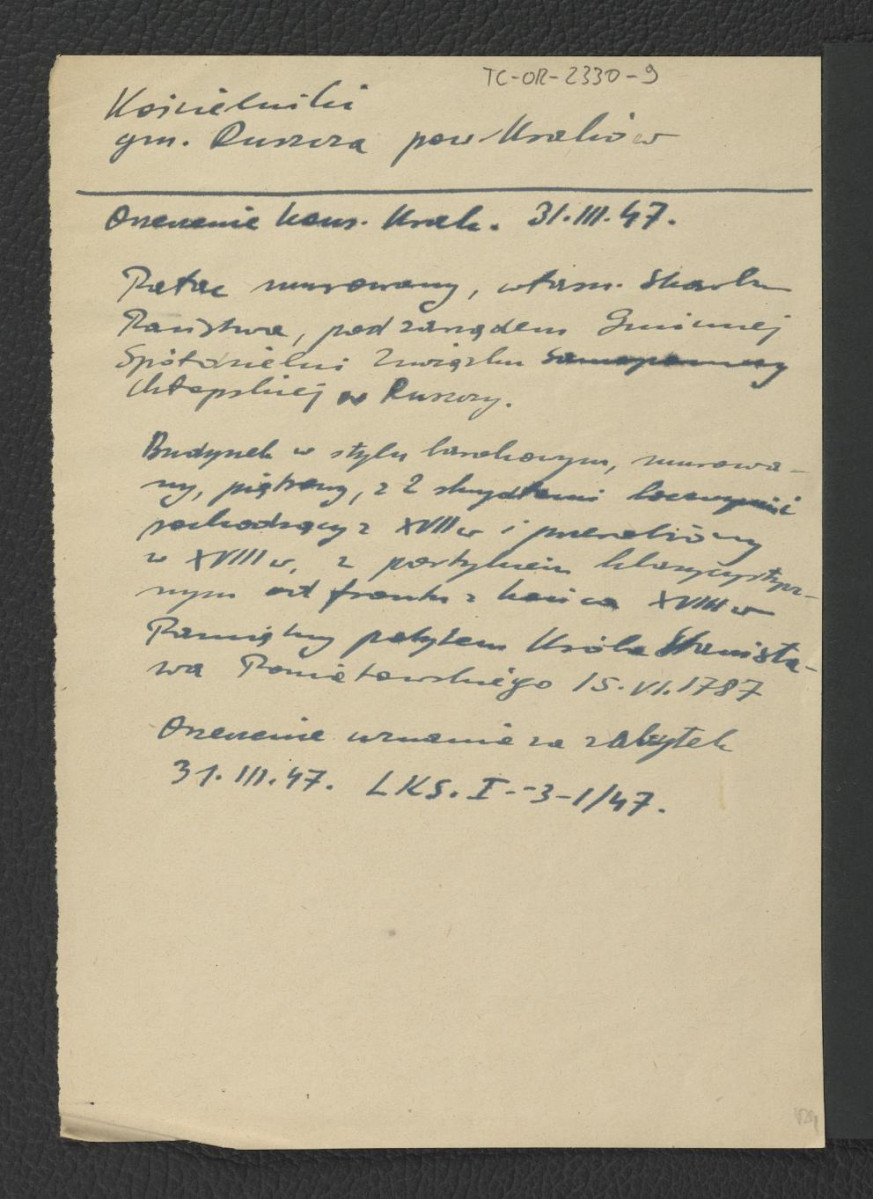 TC-OR-2330-9
Kościelniki
gm. Ruszcza pow. Kraków
Orzeczenie kons. Krak. 31.III.47.
Pałac murowany, własn. Skarbu
Państwa, pod zarządem Gminnej
Spółdzielni Związku Samopomocy
Chłopskiej w Ruszczy.
Budynek w stylu barokowym, murowa-
ny, piętrowy, z 2 skrzydłami bocznymi
pochodzący z XVII w i przerobiony
w XVIII w, z portykiem klasycystycz-
nym od frontu z końca XVIII w
Pamiętny pobytem Króla Stanisła-
wa Poniatowskiego 15.VI.1787
Orzeczenie uznanie za zabytek
31.III.47. LKS.I--3-1/47.